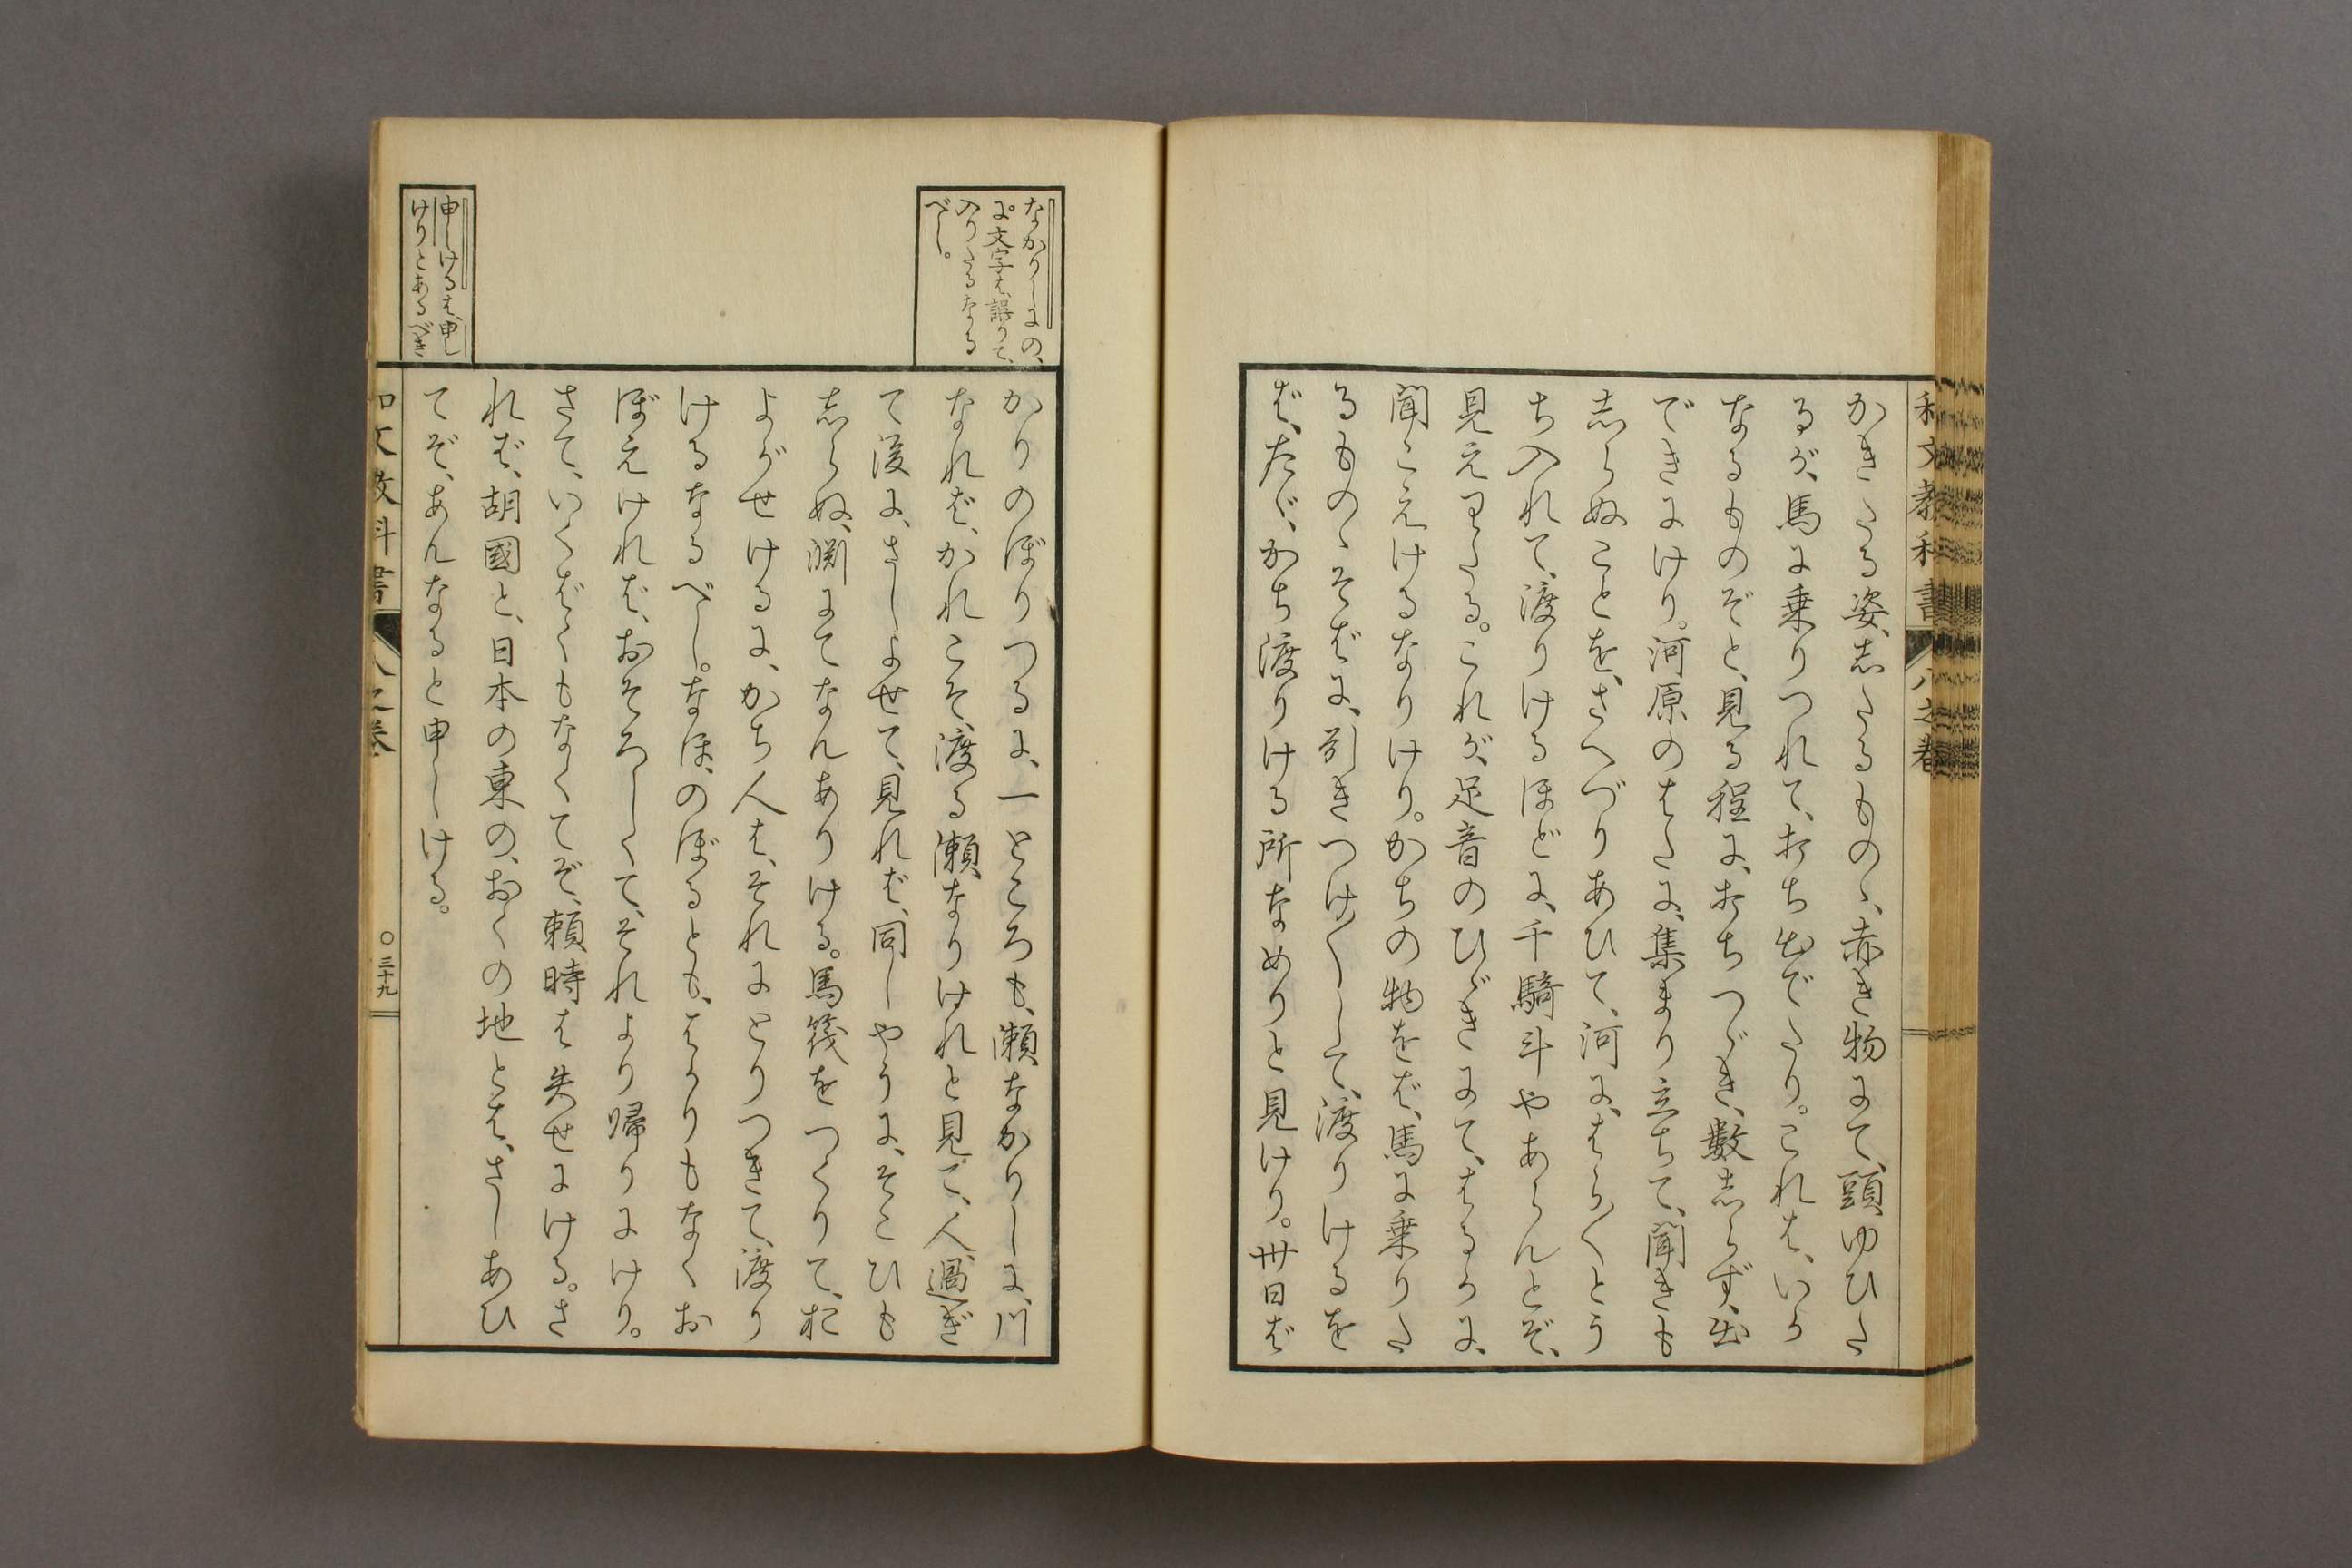 和文教科書 八之卷
かきたる姿、志たるもの、赤き物にて、頭ゆひた
るが、馬に乗りつれて、おち出でたり。これは、いか
なるものぞと、見る程に、おちつゞき、數志らず、出
できにけり。河原のはたに、集まり立ちて、聞きも
志らぬことを、さへづりあひて、河に、はら〳〵とう
ち入れて、渡りけるほどに、千騎斗やあらんとぞ、
見えわたる。これが、足音のひゞきにて、はるかに、
聞こえけるなりけり。かちの物をば、馬に乗りた
るもの、そばに、引きつけ〳〵して、渡りけるを
ば、たゞ、かち渡りける所なめりと見けり。卅日ば
なかりしにの、
に。文字は、誤りて、
入りたるなる
べし。
かりのぼりつるに、一ところも、瀬なかりしに、川
なれば、かれこそ、渡る瀬なりけれと見て、人、過ぎ
て後に、さしよせて、見れば、同しやうに、そこひも
志らぬ、淵にてなんありける。馬筏をつくりて、お
よがせけるに、かち人は、それにとりつきて、渡り
けるなるべし。なほ、のぼるとも、はかりもなくお
ぼえければ、おそろしくて、それより帰りにけり。
さて、いくばくもなくてぞ、頼時は失せにける。さ
れば、胡國と、日本の東の、おくの地とは、さしあひ
てぞ、あんなると申しける。
申しけるは、申し
けりとあるべき
和文教科書 八之卷
〇三十九